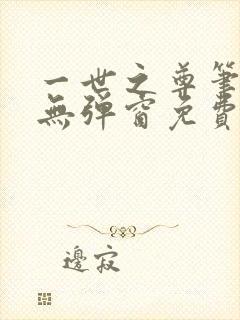 一世之尊筆
無彈窗免費
邊寂